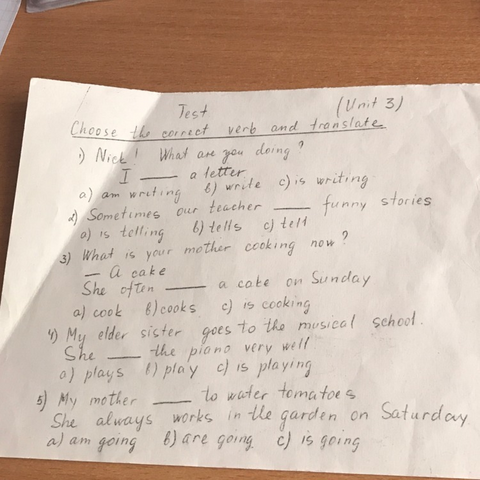 Test (Unit 3)
Choose the correct verb and translate
1) Nick! What are you doing?
I ___ a letter
a) am writing b) write c) is writing
2) Sometimes our teacher ___ funny stories
a) is telling b) tells c) tell
3) What is your mother cooking now?
— A cake
She often ___ a cake on Sunday
a) cook b) cooks c) is cooking
4) My elder sister goes to the musical school.
She ___ the piano very well
a) plays b) play c) is playing
5) My mother ___ to water tomatoes
She always works in the garden on Saturday
a) am going b) are going c) is going